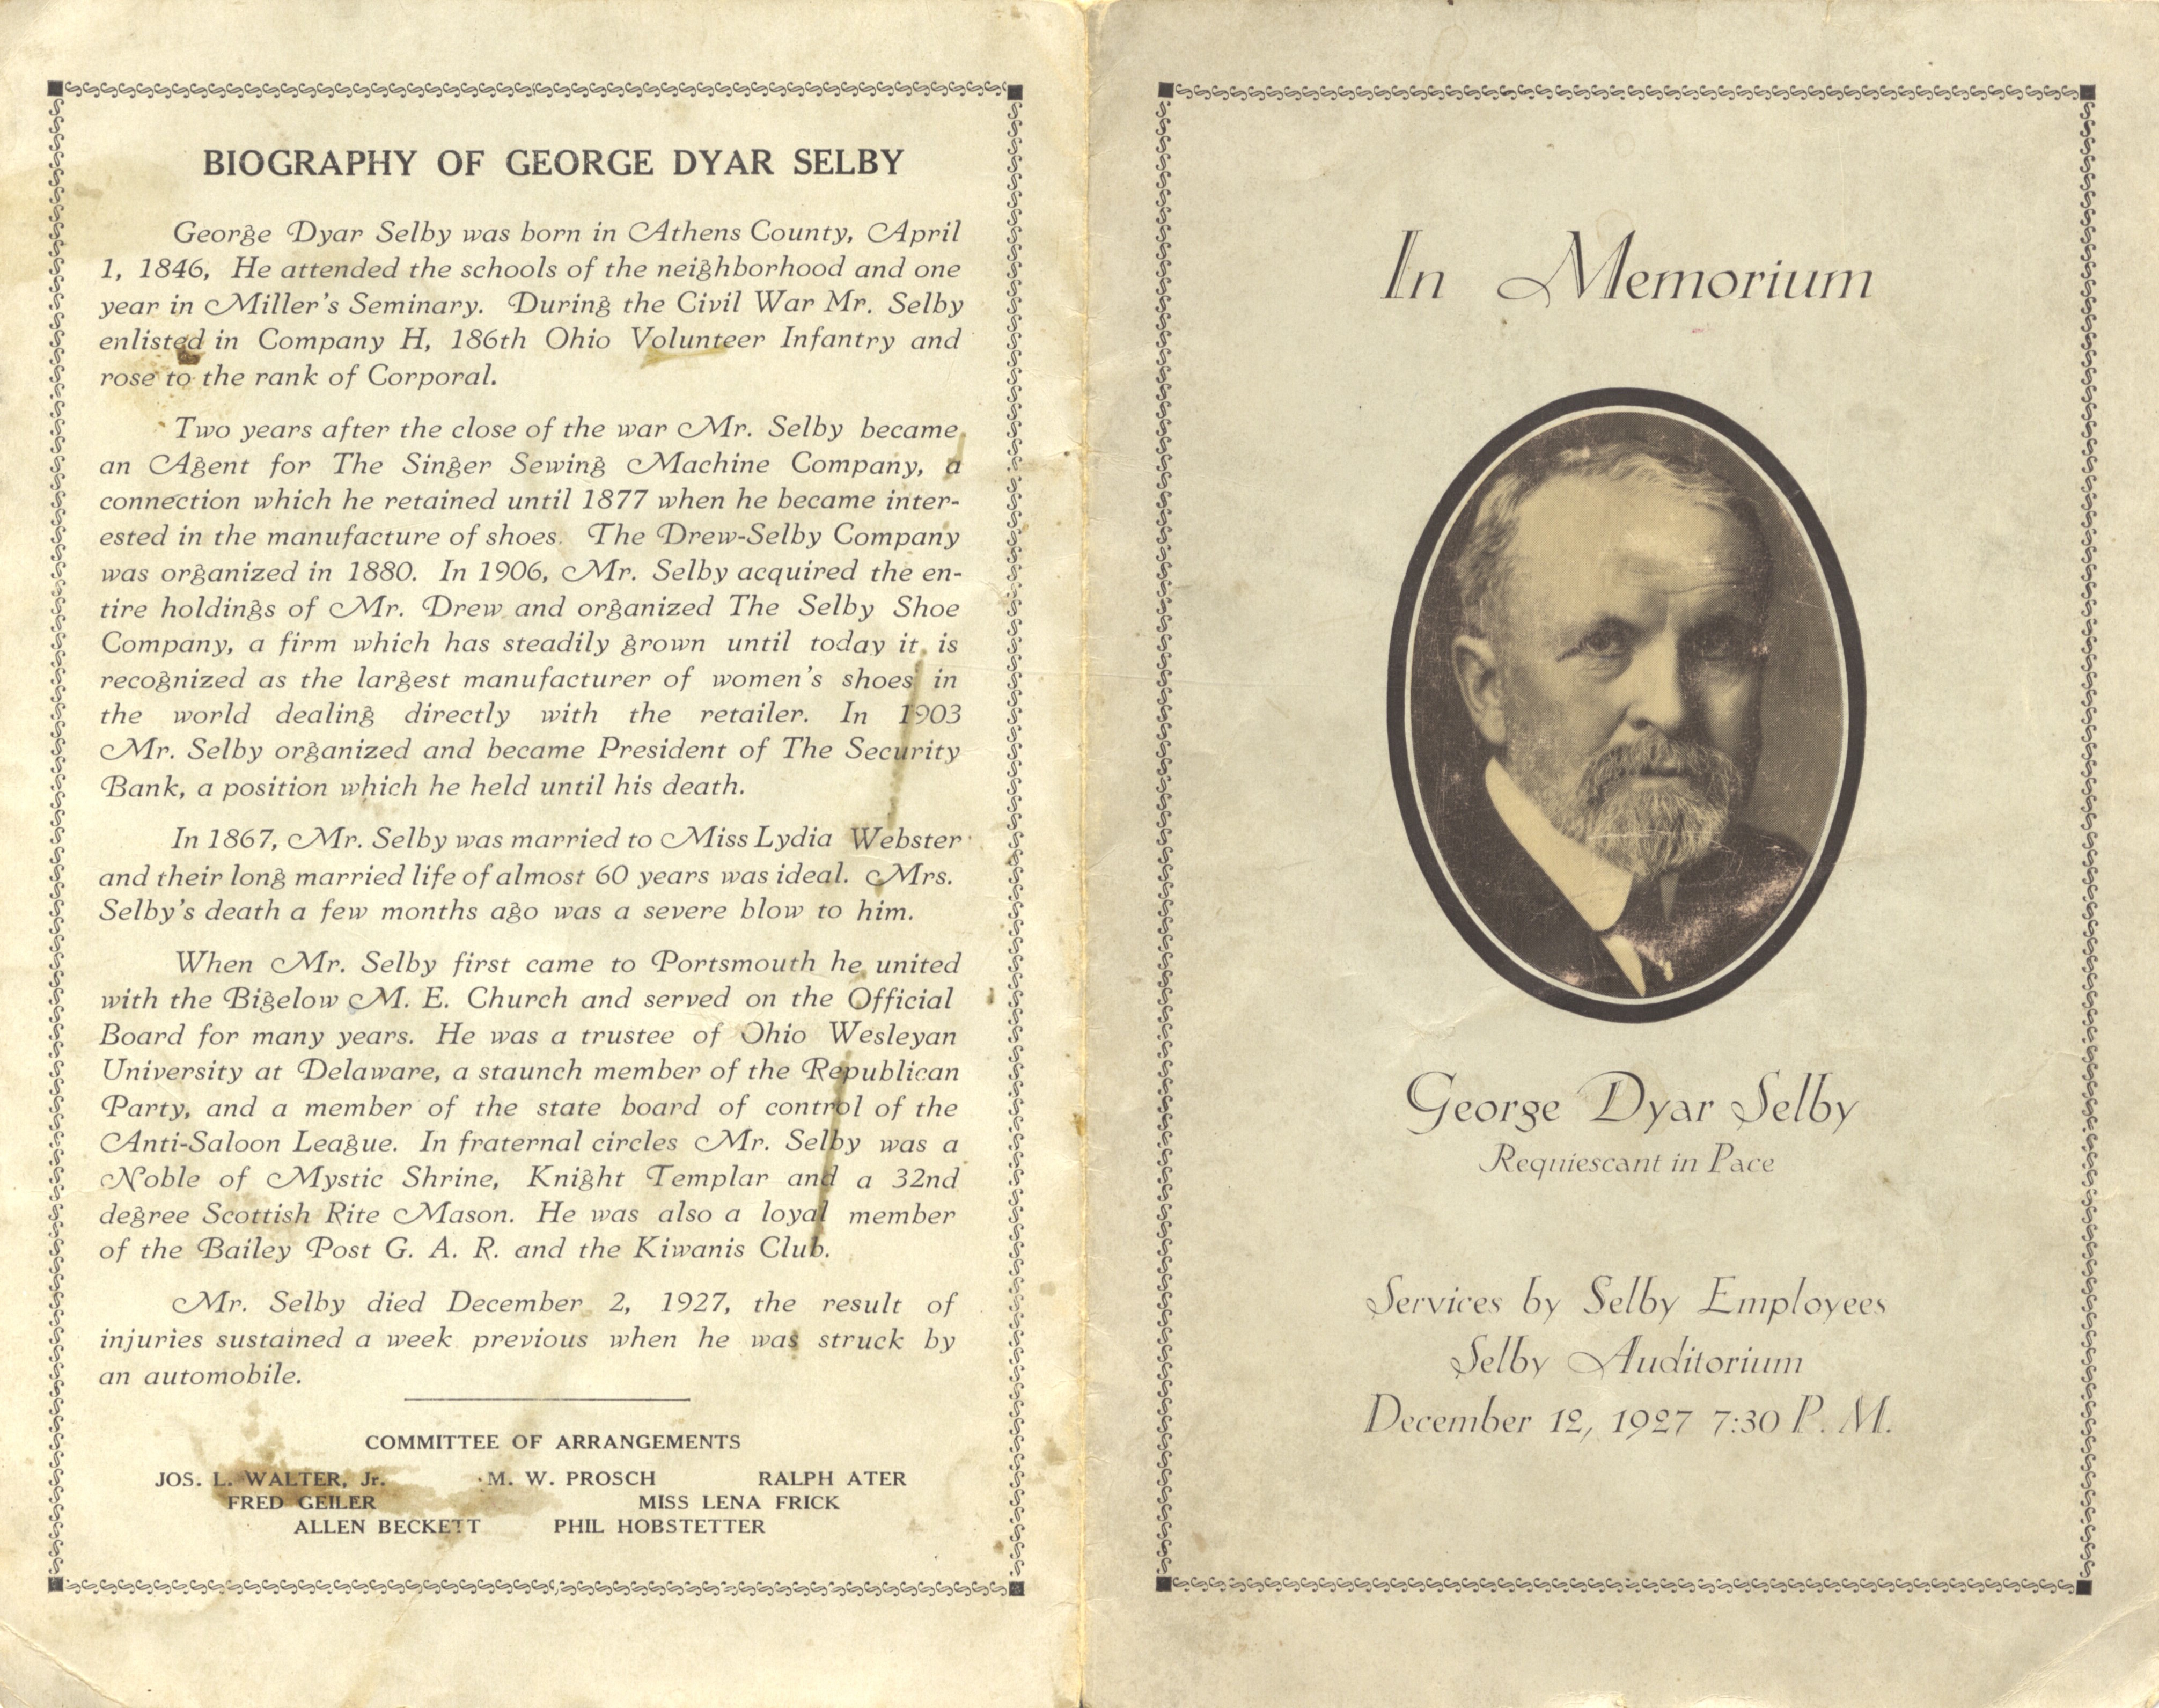 BIOGRAPHY OF GEORGE DYAR SELBY
George Dyar Selby was born in Athens County, April
1, 1846, He attended the schools of the neighborhood and one
year in Miller's Seminary. During the Civil War Mr. Selby
enlisted in Company H, 186th Ohio Volunteer Infantry and
rose to the rank of Corporal.
Two years after the close of the war Mr. Selby became
an Agent for The Singer Sewing Machine Company, a
connection which he retained until 1877 when he became inter-
ested in the manufacture of shoes. The Drew-Selby Company
was organized in 1880. In 1906, Mr. Selby acquired the en-
tire holdings of Mr. Drew and organized The Selby Shoe
Company, a firm which has steadily grown until today it is
recognized as the largest manufacturer of women's shoes in
the world dealing directly with the retailer. In 1903
Mr. Selby organized and became President of The Security
Bank, a position which he held until his death.
In 1867, Mr. Selby was married to Miss Lydia Webster
and their long married life of almost 60 years was ideal. Mrs.
Selby's death a few months ago was a severe blow to him.
When Mr. Selby first came to Portsmouth he united
with the Bigelow M. E. Church and served on the Official
Board for many years. He was a trustee of Ohio Wesleyan
University at Delaware, a staunch member of the Republican
Party, and a member of the state board of control of the
Anti-Saloon League. In fraternal circles Mr. Selby was a
Noble of Mystic Shrine, Knight Templar and a 32nd
degree Scottish Rite Mason. He was also a loyal member
of the Bailey Post G. A. R. and the Kiwanis Club.
Mr. Selby died December 2, 1927, the result of
injuries sustained a week previous when he was struck by
an automobile.
COMMITTEE OF ARRANGEMENTS
JOS. L. WALTER, Jr. M. W. PROSCH RALPH ATER
FRED GEILER MISS LENA FRICK
ALLEN BECKETT PHIL HOBSTETTER
In Memorium
George Dyar Selby
Requiescant in Pace
Services by Selby Employees
Selby Auditorium
December 12, 1927 7:30 P. M.